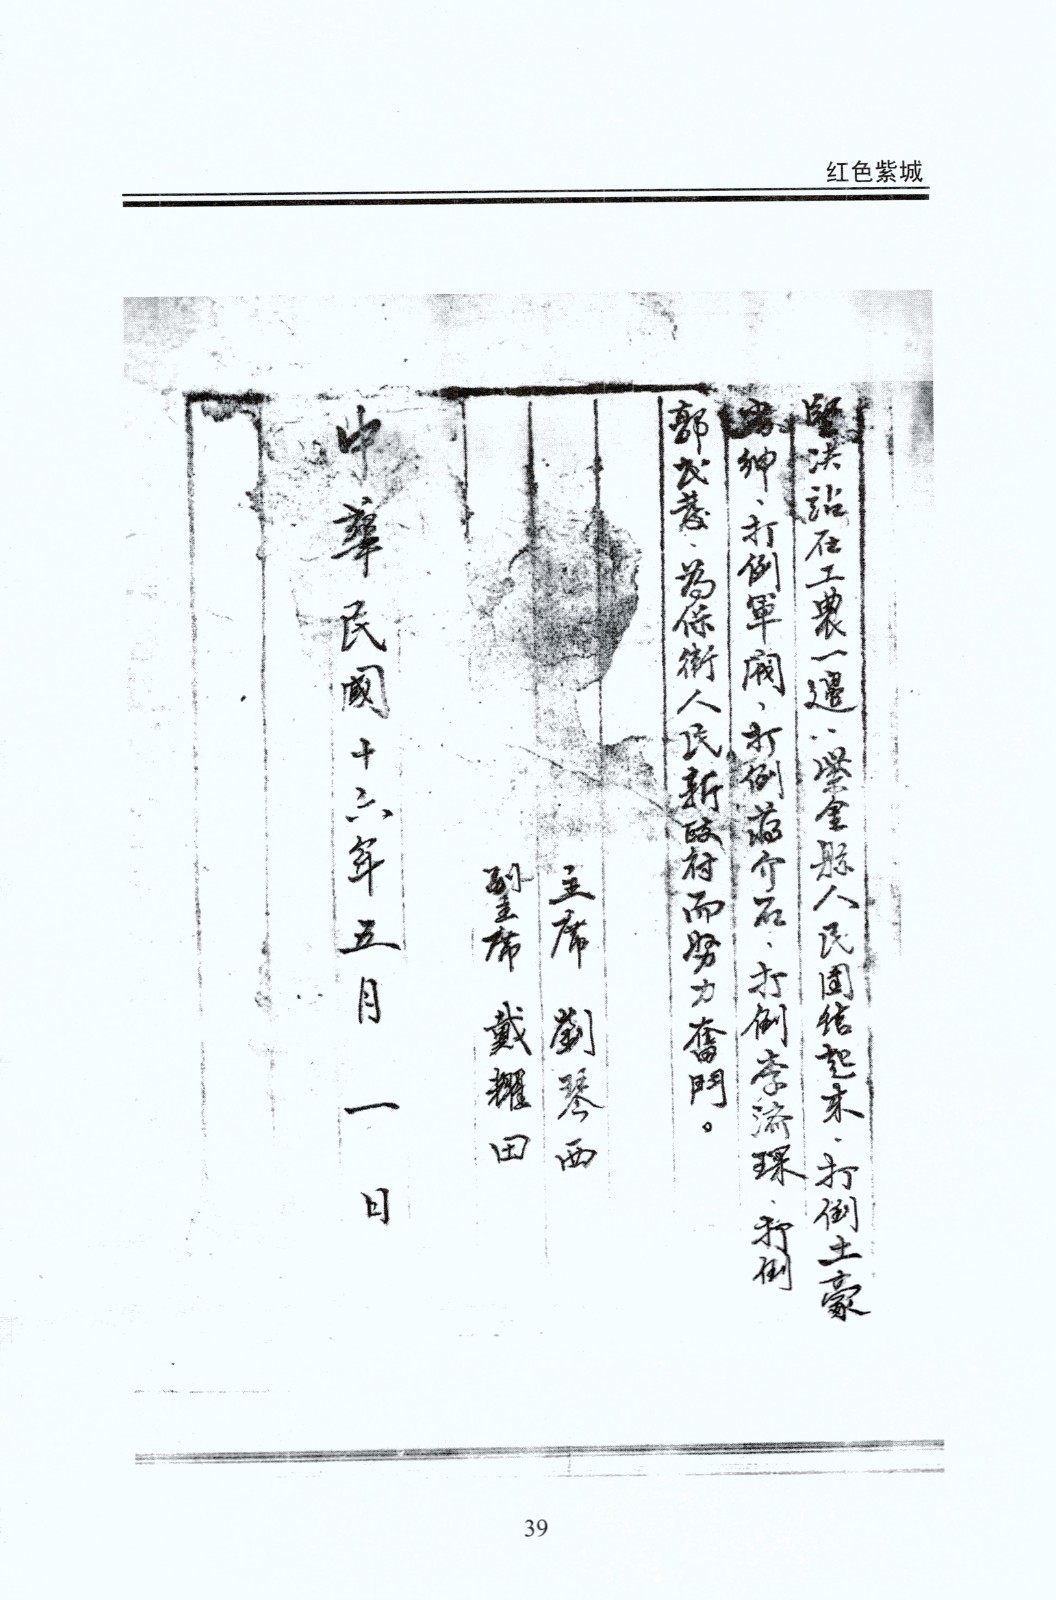 红色紫城
堅决站在工農一邊，紫金縣人民團结起来、打倒土豪
劣紳、打倒軍閥、打倒蔣介石、打倒李济琛、打倒
郭民發、為保衛人民新政府而努力奮鬥。
主席 劉琴西
副主席 戴耀田
中華民國十六年五月一日
39